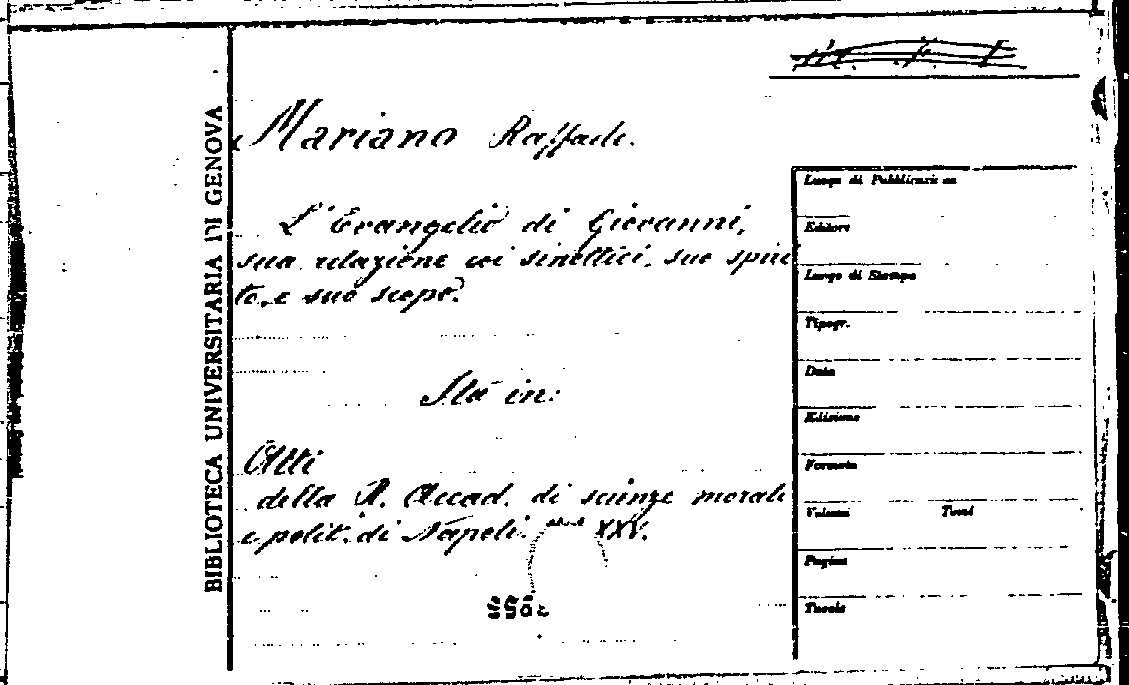 BIBLIOTECA UNIVERSITARIA DI GENOVA
Mariano Raffaele.
L'Evangelio di Giovanni,
sua relazione coi sinottici, suo spiri
to, e suo scopo.
Sta in:
Atti
della R. Accad. di scienze morali
e polit. di Napoli. XXV.
Luogo di Pubblicazione
Editore
Luogo di Stampa
Tipogr.
Data
Edizione
Formato
Volumi Tomi
Pagine
Tavole